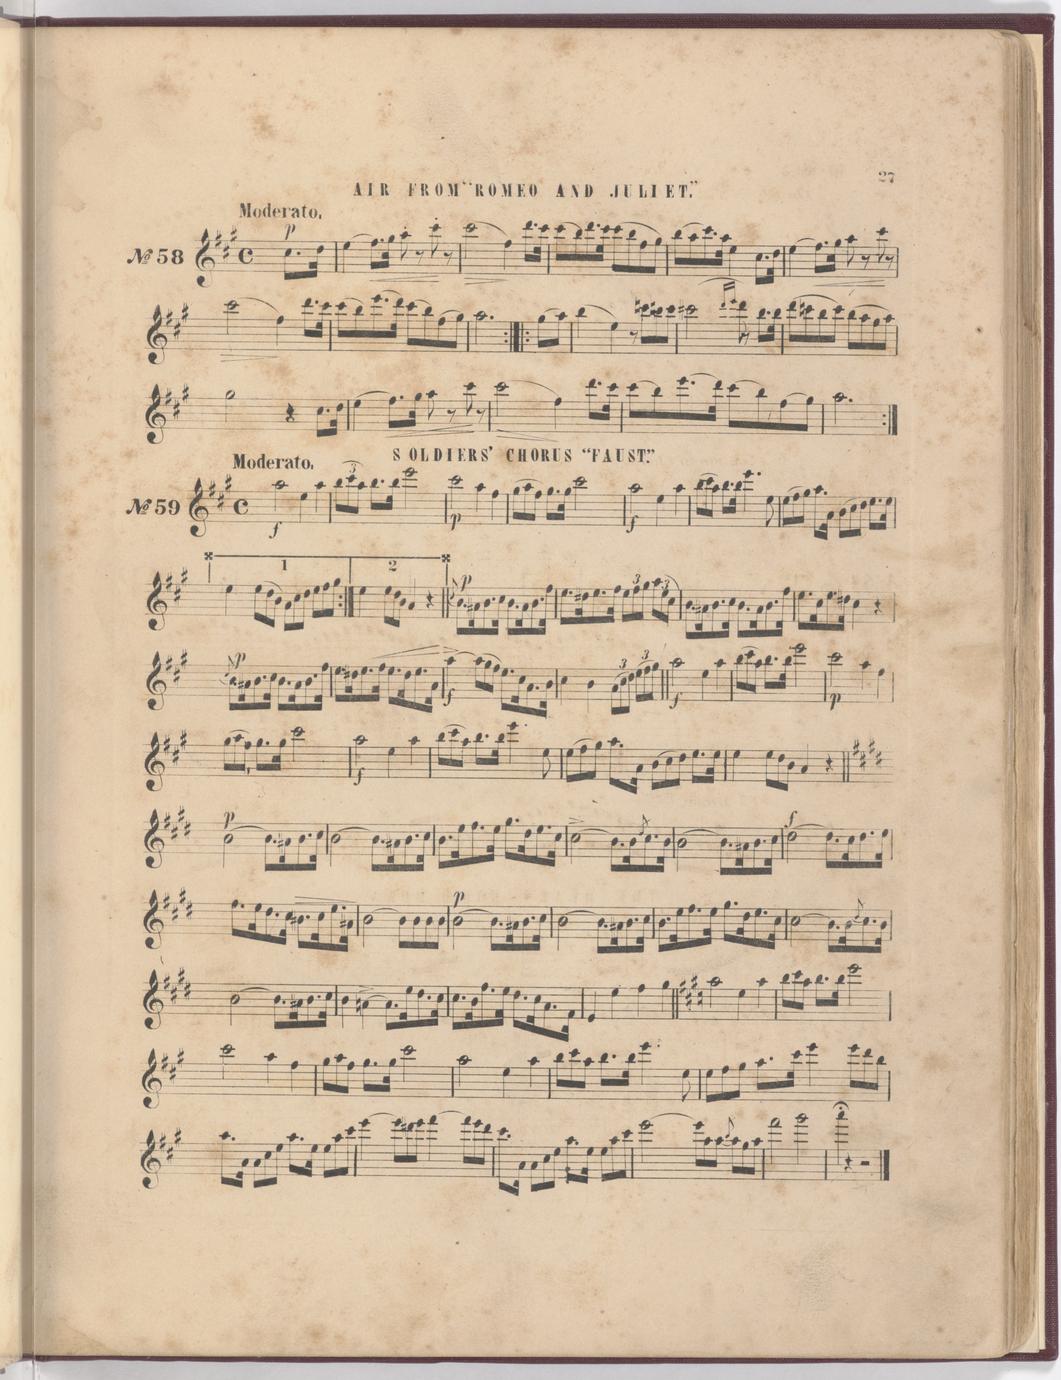 27
AIR FROM "ROMEO AND JULIET."
Moderato.
p
№ 58
SOLDIERS' CHORUS "FAUST."
Moderato.
3
№ 59
f p f
1 2
p 3 3
p f 3 3 f p
f
p f
p